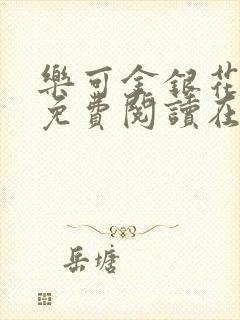 樂可金銀花
免費閱讀在
岳塘